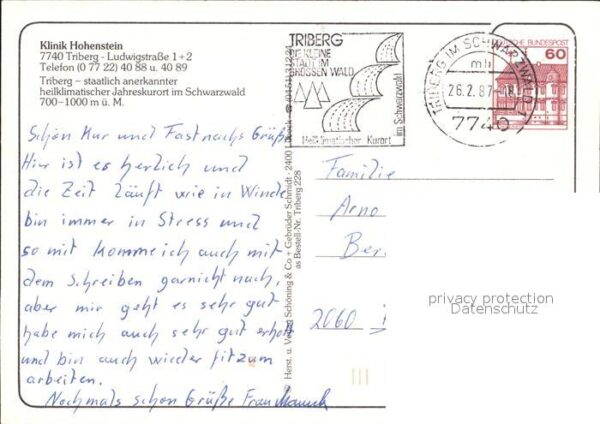 Klinik Hohenstein
7740 Triberg - Ludwigstraße 1+2
Telefon (0 77 22) 40 88 u. 40 89
Triberg – staatlich anerkannter
heilklimatischer Jahreskurort im Schwarzwald
700–1000 m ü. M.
TRIBERG
DIE KLEINE
STADT IM
GROSSEN WALD
Heilklimatischer Kurort
im Schwarzwald
TRIBERG IM SCHWARZWALD 1
mb
26.2.87-18
7740
DEUTSCHE BUNDESPOST
60
Schön Kur und Fastnachs Grüße
Hier ist es herlich und
die Zeit läuft wie in Winde
bin immer in Stress und
so mit komme ich auch mit
dem Schreiben garnicht nach,
aber mir geht es sehr gut
habe mich auch sehr gut erholt
und bin auch wieder fit zum
arbeiten.
Nochmals schön Grüße Frau
Herst. u. Verlag Schöning & Co + Gebrüder Schmidt · 2400 Lübeck
as Bestell-Nr. Triberg 228
Familie
Arno
Ber
2060
privacy protection
Datenschutz